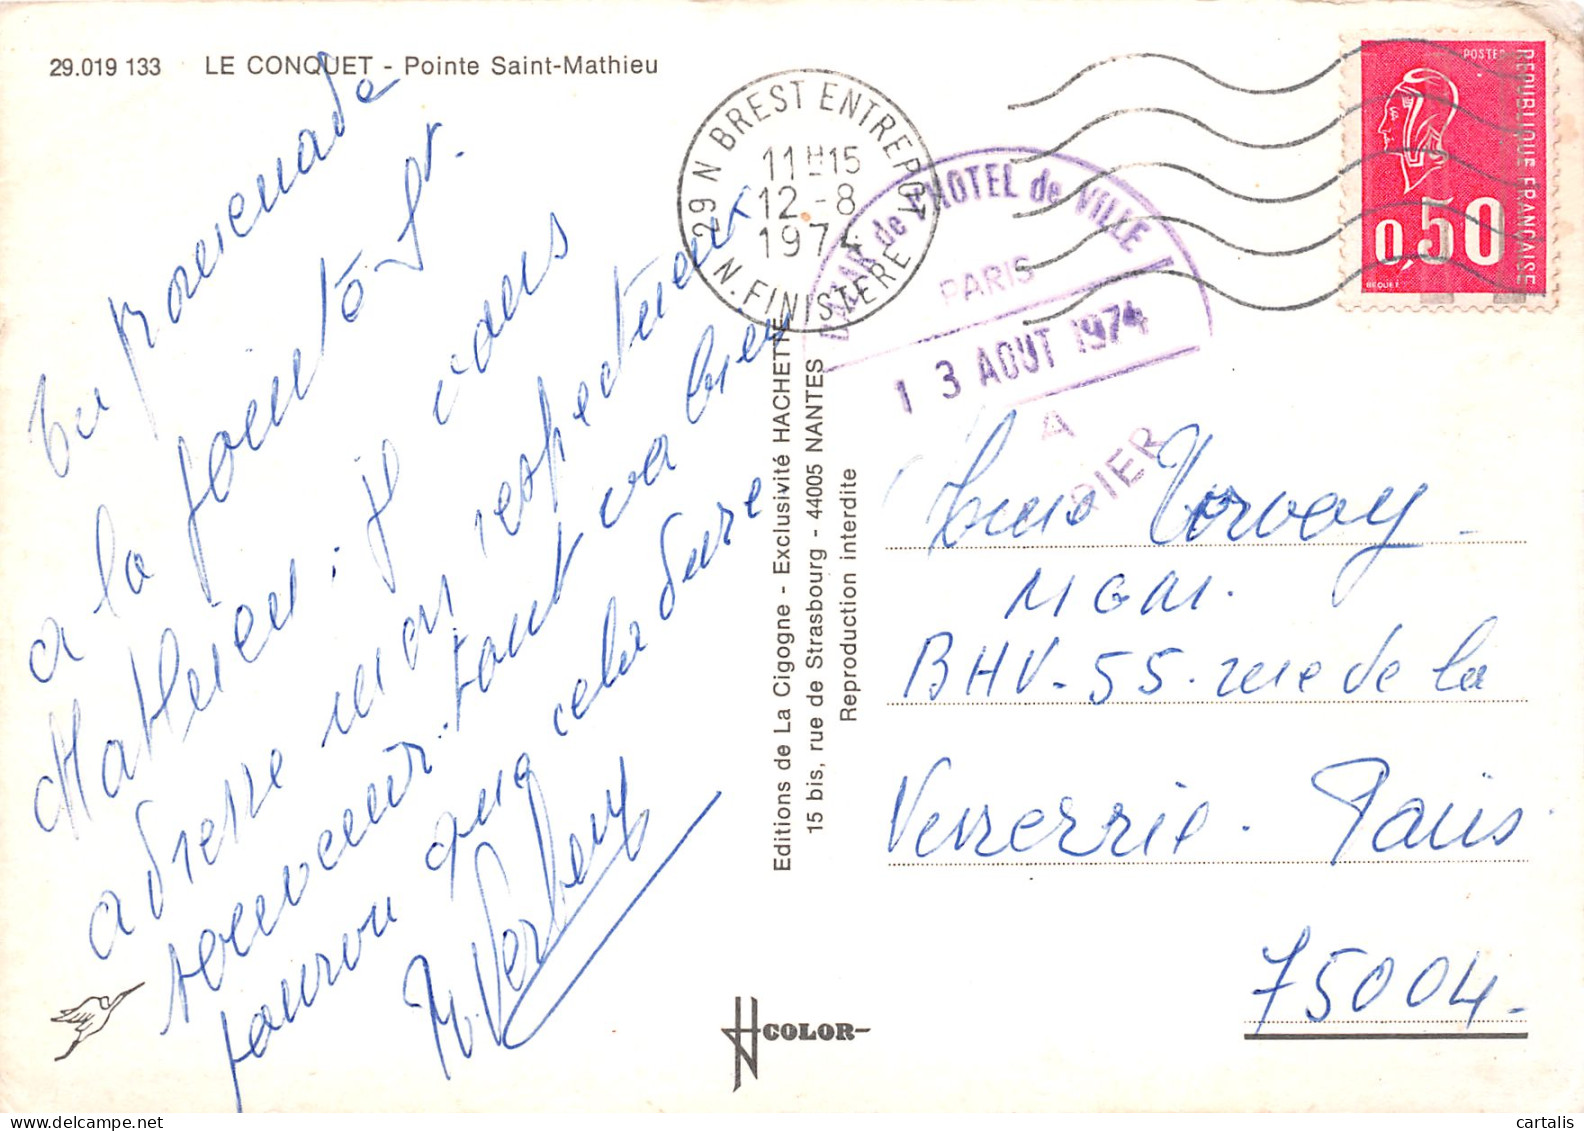 29.019 133 LE CONQUET - Pointe Saint-Mathieu
En promenade
a la pointe St.
Mathieu : je vous
adresse mon respectueux
souvenir. tout va bien
pourvu que cela dure
29 N BREST ENTREPOT
11H15
12 -8
1974
N. FINISTERE
de L'HOTEL de VILLE
PARIS
13 AOUT 1974
A
POSTES
REPUBLIQUE FRANCAISE
0,50
BEQUET
Editions de La Cigogne - Exclusivité HACHETTE
15 bis, rue de Strasbourg - 44005 NANTES
Reproduction interdite
MGM.
BHV - 55 rue de la
Verrerrie. Paris.
75004.
COLOR
cartalis
www.delcampe.net